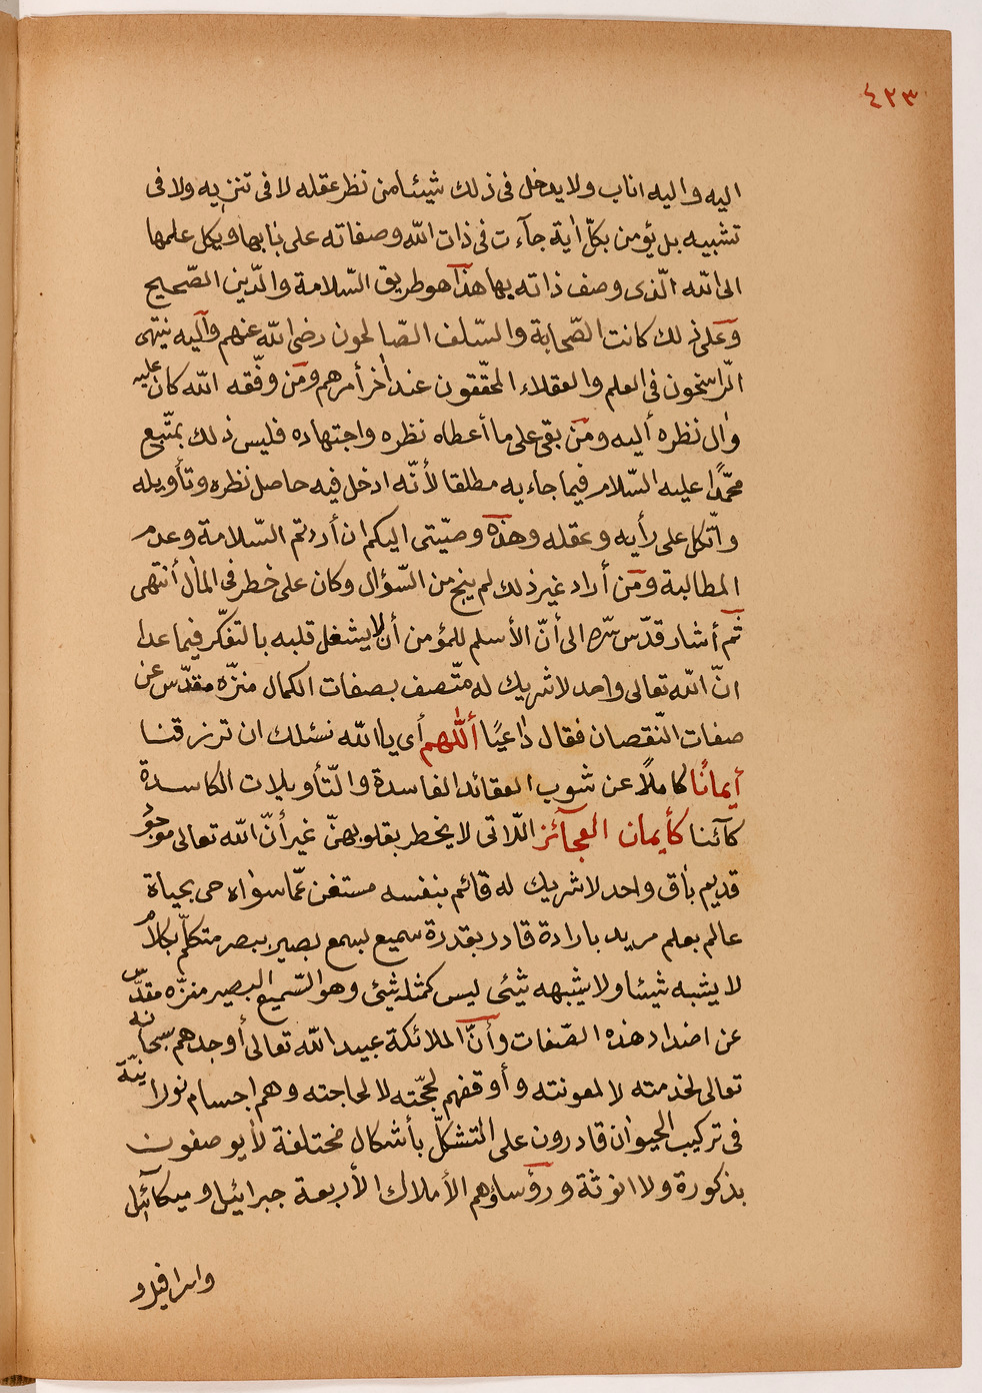 ٤٢٣
اليه واليه اناب ولا يدخل فى ذلك شيئا من نظر عقله لا فى تنزيه ولا فى
تشبيه بل يؤمن بكلّ اٰية جآءت فى ذات اللّه وصفاته على بابها ويكل علمها
الى اللّه الّذى وصف ذاته بها هذا هو طريق السّلامة والدّين الصّحيح
وعلى ذلك كانت الصّحابة والسّلف الصّالحون رضى اللّه عنهم وآليه ينتهى
الرّاسخون فى العلم والعقلاء المحقّقون عند اٰخر أمرهم ومن وفّقه اللّه كان عليه
واٰل نظره أليه ومن بقى على ما أعطاه نظره واجتهاده فليس ذلك بمتّبع
محمّدًا عليه السّلام فيما جاء به مطلقا لأنّه ادخل فيه حاصل نظره وتأويله
واتّكل على رأيه وعقله وهذه وصيّتى اليكم ان أردتم السّلامة وعدم
المطالبة ومن أراد غير ذلك لم ينج من السّؤال وكان على خطر فى المال أنتهى
ثم أشار قدّس سّره الى أنّ الأسلم للمؤمن أن لا يشغل قلبه بالتفكّر فيما عدا
انّ اللّه تعالى واحد لا شريك له متّصف بصفات الكمال منزّه مقدّس عن
صفات النّقصان فقال دٰاعيًا أللّٰهم أى يا اللّه نسئلك ان ترزقنا
أيمانًا كاملاً عن شوب العقائد الفاسدة والتّأويلات الكاسدة
كآئنا كأيمان العجآئز اللّاتى لا يخطر بقلوبهنّ غير أنّ اللّه تعالى موجود
قديم باق واحد لا شريك له قائم بنفسه مستغن عمّا سوٰاه حى بحياة
عالم بعلم مريد بارادة قادر بقدرة سميع بسمع بصير ببصر متكلّم بكلام
لا يشبه شيئا ولا يشبهه شئى ليس كمثله شئى وهو السّميع البصير منزّه مقدّس
عن اضداد هذه الصّفات وأنّ الملائكة عبيد اللّه تعالى أوجدهم سبحانه
تعالى لخدمته لا لمعونته وأوقفهم لحجّته لا لحاجته وهم اجسام نورانيّة
فى تركيب الحيوٰان قادرون على التشكّل بأشكال مختلفة لا يوصفون
بذكورة ولا انوثة ورؤساؤهم الأملاك الأربعة جبرائيل وميكآئل
واسرافيل و